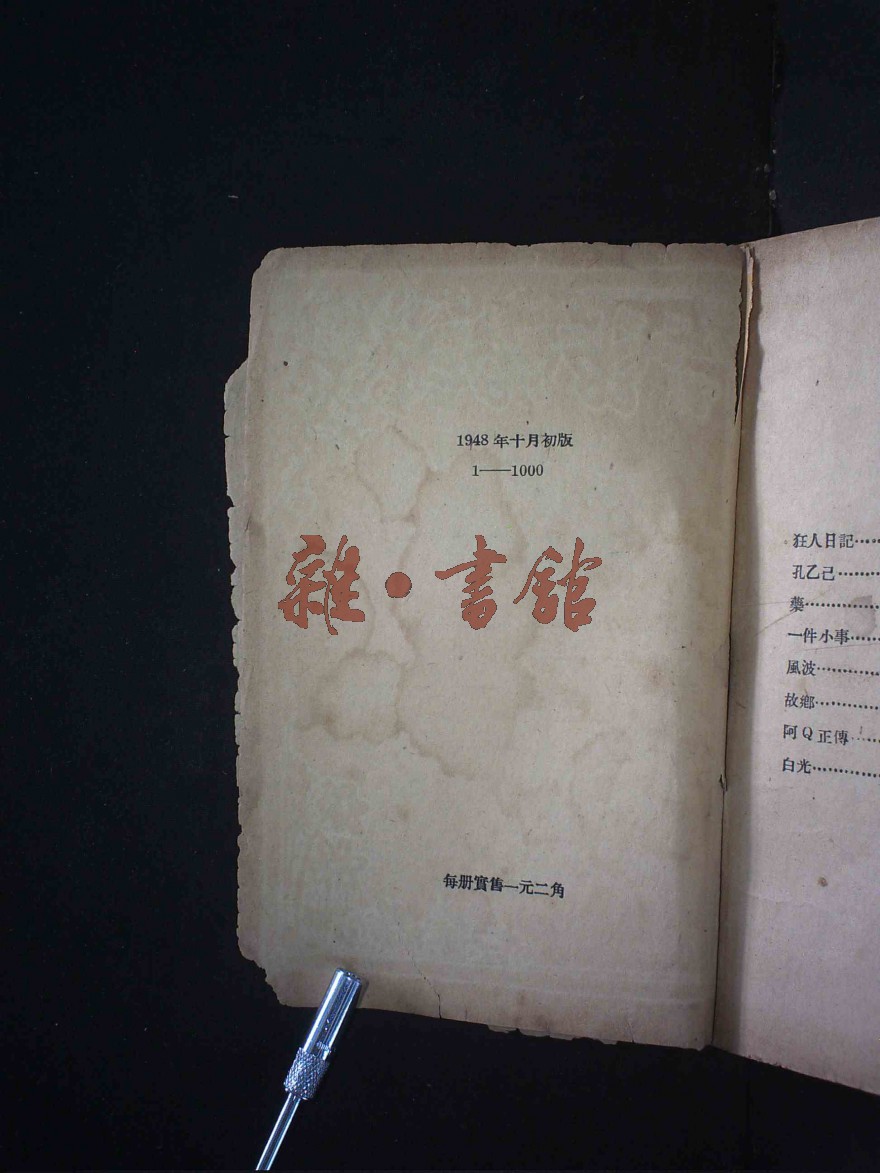 1948年十月初版
1——1000
雜·書館
每册實售一元二角
狂人日記……
孔乙己……
藥……
一件小事……
風波……
故鄉……
阿Q正傳……
白光……